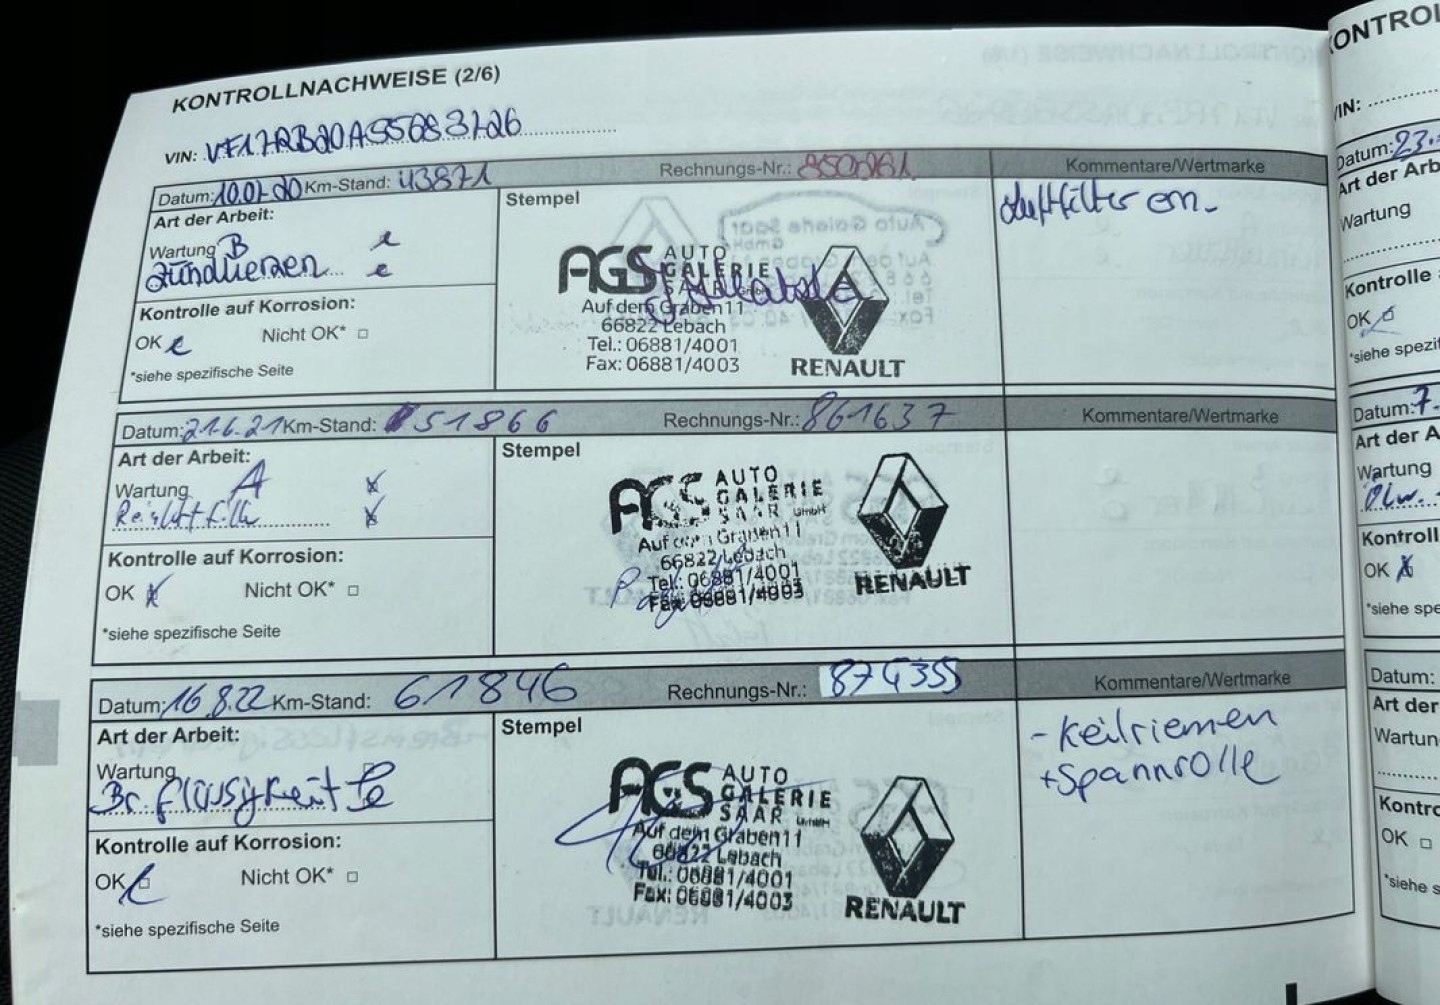 KONTROLLNACHWEISE (2/6)
VIN: VF17RB20A55683726
Datum: 10.07.20 Km-Stand: 43871 Rechnungs-Nr.: 8506181 Kommentare/Wertmarke
Art der Arbeit: Stempel Luftfilter ern.
Wartung B
Zündkerzen
AGS AUTO GALERIE SAAR GmbH
Auf dem Graben 11
66822 Lebach
Tel.: 06881/4001
Fax: 06881/4003
RENAULT
Kontrolle auf Korrosion:
OK Nicht OK* □
*siehe spezifische Seite
Datum: 21.6.21 Km-Stand: 51866 Rechnungs-Nr.: 861637 Kommentare/Wertmarke
Art der Arbeit: Stempel
Wartung A
AGS AUTO GALERIE SAAR GmbH
Auf dem Graben 11
66822 Lebach
Tel.: 06881/4001
Fax: 06881/4003
RENAULT
Kontrolle auf Korrosion:
OK Nicht OK* □
*siehe spezifische Seite
Datum: 16.8.22 Km-Stand: 61846 Rechnungs-Nr.: 874355 Kommentare/Wertmarke
Art der Arbeit: Stempel - Keilriemen
+ Spannrolle
Wartung
Br. flüssigkeit
AGS AUTO GALERIE SAAR GmbH
Auf dem Graben 11
66822 Lebach
Tel.: 06881/4001
Fax: 06881/4003
RENAULT
Kontrolle auf Korrosion:
OK □ Nicht OK* □
*siehe spezifische Seite
VIN:
Datum: 23.
Art der Arb
Wartung
Kontrolle
OK
*siehe spezif
Datum: 7.
Art der A
Wartung
Kontroll
OK
*siehe spe
Datum:
Art der
Wartun
Kontro
OK □
*siehe s